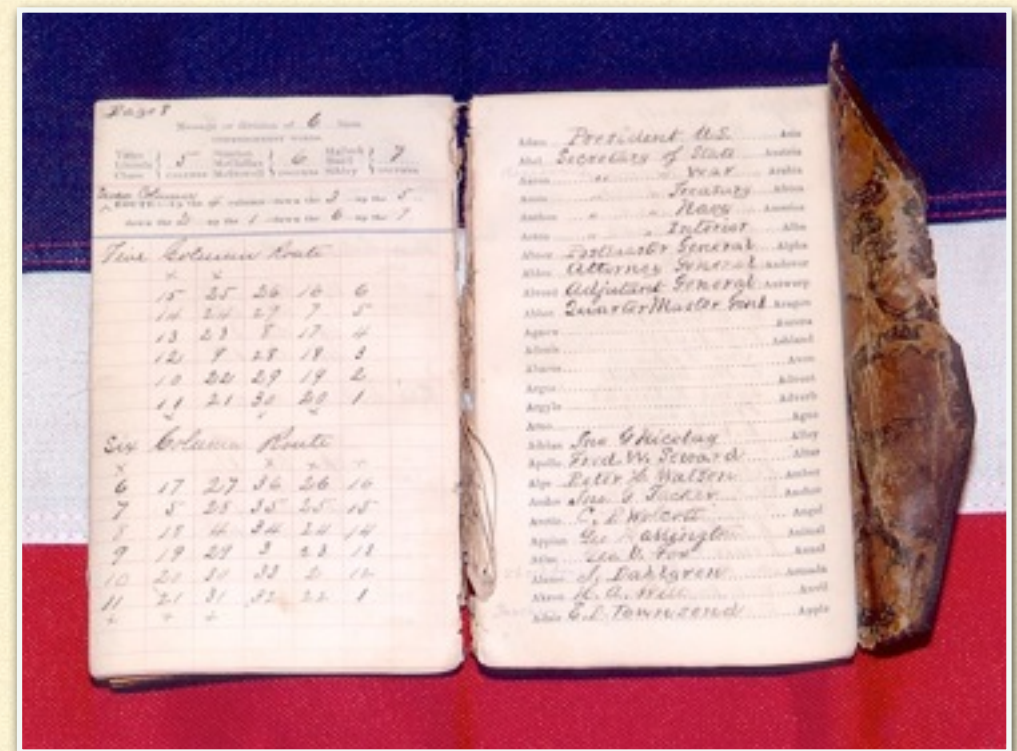 Page 8
Message or division of 6 lines
5 6 7
COLUMNS COLUMNS COLUMNS
ROUTE: Up the 4 column down the 3 up the 5
down the 2 up the 1 down the 6 up the 7
Five Column Route
x x
15 25 26 16 6
14 24 27 7 5
13 23 8 17 4
12 9 28 18 3
10 22 29 19 2
11 21 30 20 1
Six Column Route
x x x x
6 17 27 36 26 16
7 5 28 35 25 15
8 18 4 34 24 14
9 19 29 3 23 13
10 20 30 33 2 12
11 21 31 32 22 1
+ + +
Adam President U.S. Asia
Abel Secretary of State Austria
Aaron " " War Arabia
" " Treasury Africa
" " Navy America
" " Interior
Abner Postmaster General Alpha
Attorney General Andover
Adjutant General Antwerp
Quarter Master Genl Aragon
Agnew Aurora
Adonis Ashland
Avon
Argus Advent
Argyle Adverb
Ague
Adrian Jno G Nicolay Alley
Apollo Fred. W. Seward
Alps Peter H Watson Amber
Jno. Tucker Anchor
Arctic C. P. Wolcott Angel
Appian Geo Harrington Animal
Atlas V. Fox Annal
J. Dahlgren Armada
Anvil
E. D. Townsend Apple